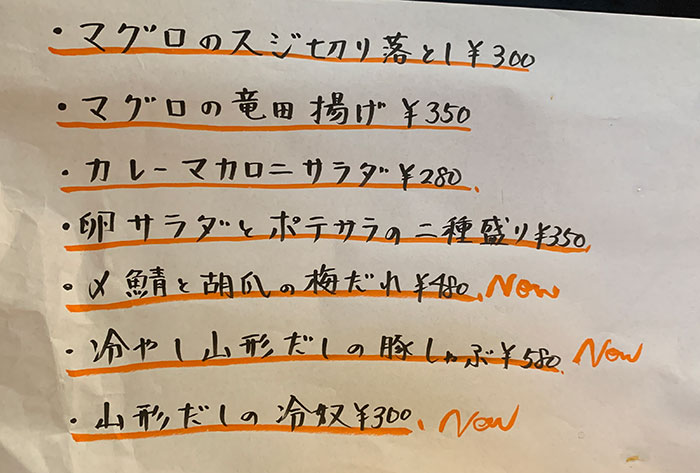 ・マグロのスジ切り落とし¥300
・マグロの竜田揚げ¥350
・カレーマカロニサラダ¥280
・卵サラダとポテサラの二種盛り¥350
・〆鯖と胡瓜の梅だれ¥480 New
・冷やし山形だしの豚しゃぶ¥580 New
・山形だしの冷奴¥300 New